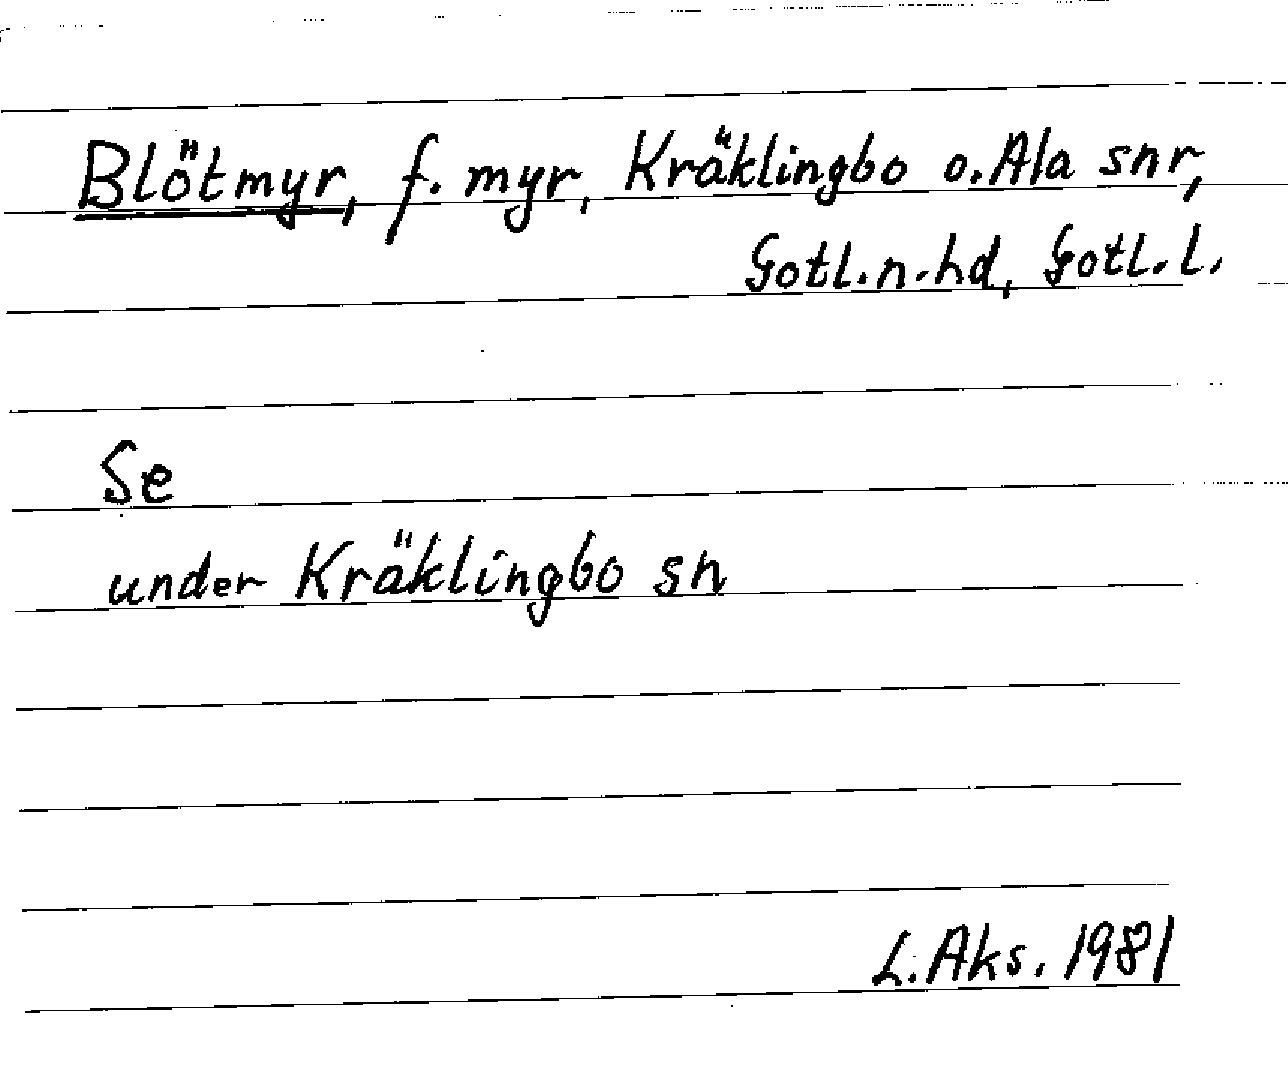 Blötmyr, f. myr, Kräklingbo o. Ala snr,
Gotl. n. hd, Gotl. l.
Se
under Kräklingbo sn
L. Aks. 1981